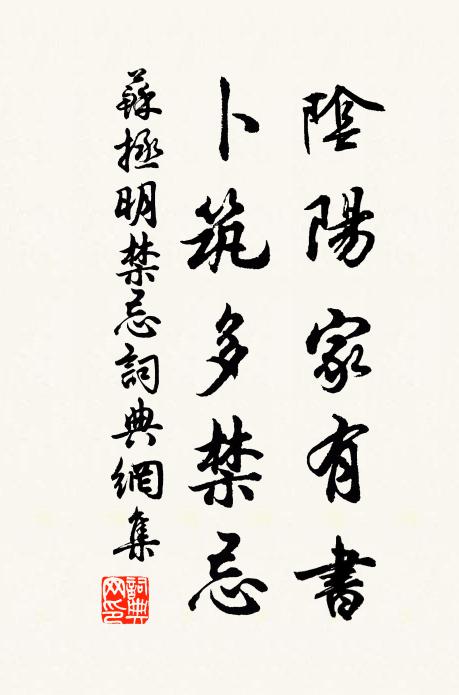 陰陽家有書
卜筑多禁忌
蘇拯明禁忌詞典網集
詞典網印